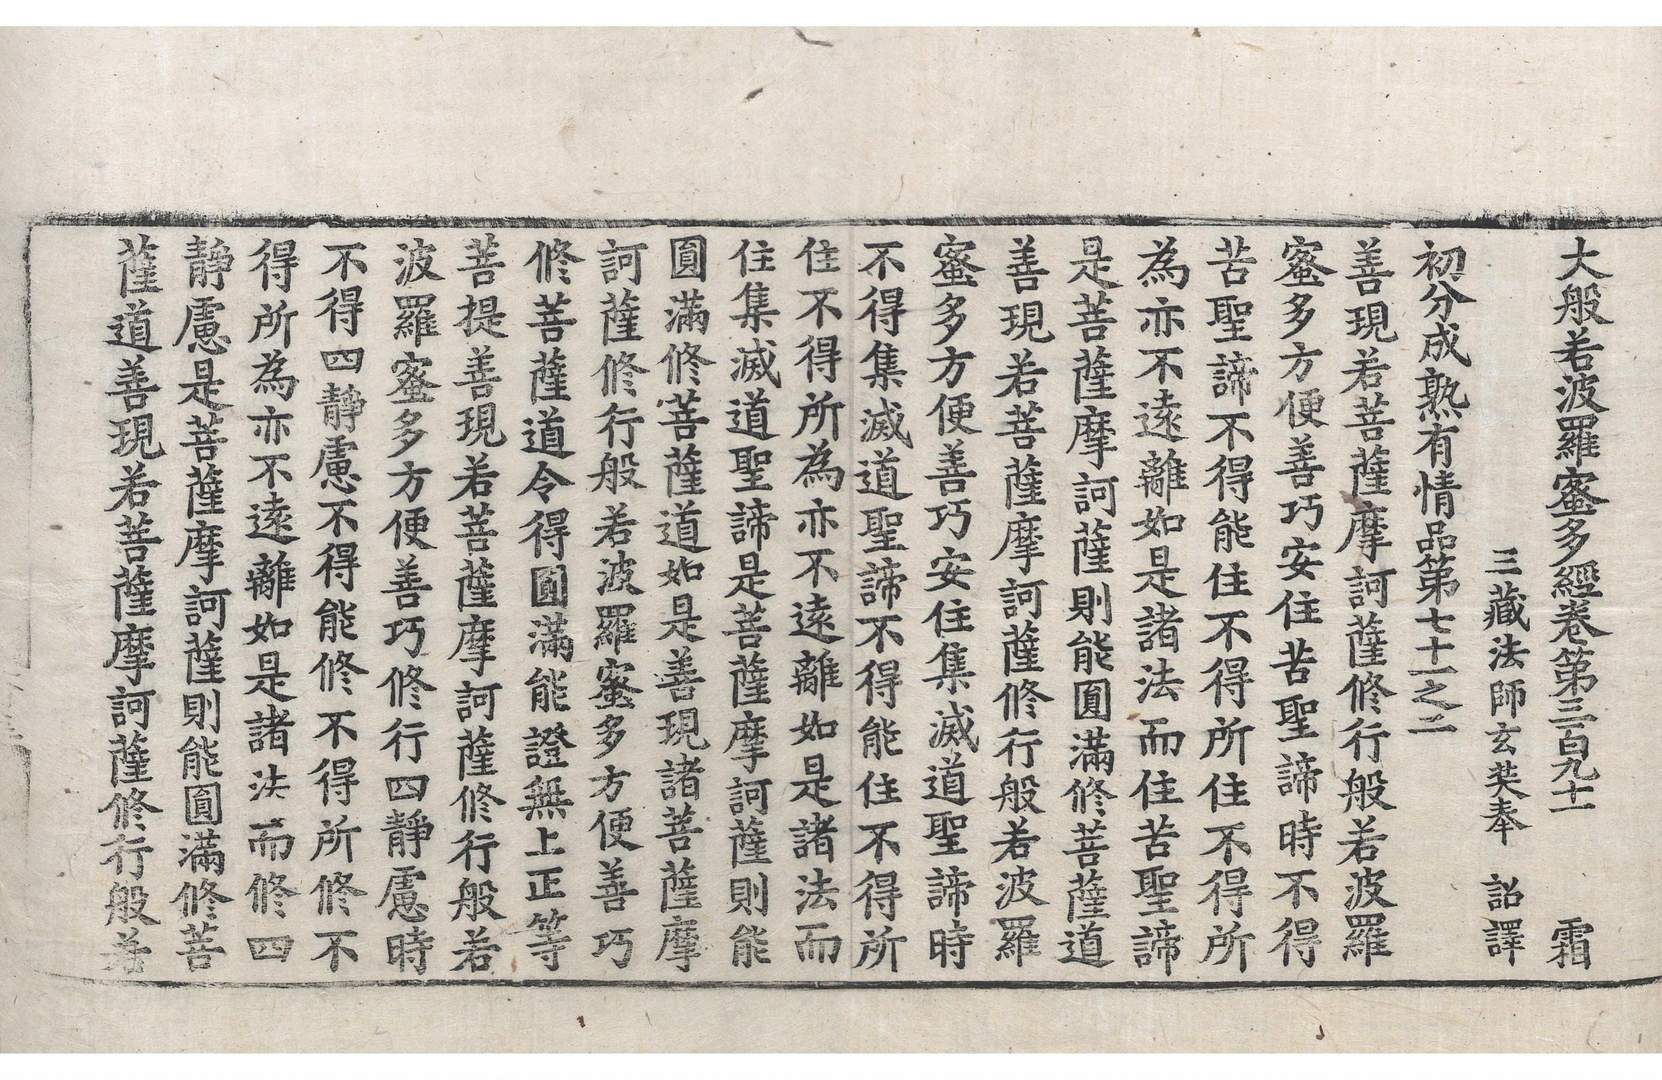 大般若波羅蜜多經卷第三百九十一　霜
三藏法師玄奘奉　詔譯
初分成熟有情品第七十一之二
善現若菩薩摩訶薩修行般若波羅
蜜多方便善巧安住苦聖諦時不得
苦聖諦不得能住不得所住不得所
為亦不遠離如是諸法而住苦聖諦
是菩薩摩訶薩則能圓滿修菩薩道
善現若菩薩摩訶薩修行般若波羅
蜜多方便善巧安住集滅道聖諦時
不得集滅道聖諦不得能住不得所
住不得所為亦不遠離如是諸法而
住集滅道聖諦是菩薩摩訶薩則能
圓滿修菩薩道如是善現諸菩薩摩
訶薩修行般若波羅蜜多方便善巧
修菩薩道令得圓滿能證無上正等
菩提善現若菩薩摩訶薩修行般若
波羅蜜多方便善巧修行四靜慮時
不得四靜慮不得能修不得所修不
得所為亦不遠離如是諸法而修四
靜慮是菩薩摩訶薩則能圓滿修菩
薩道善現若菩薩摩訶薩修行般若